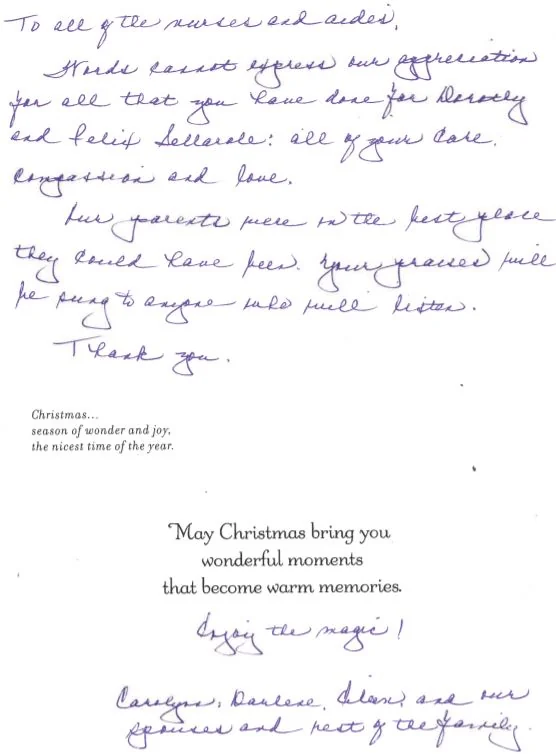 To all of the nurses and aides,
Words cannot express our appreciation
for all that you have done for Dorothy
and Felix Sellarole: all of your care,
compassion and love.
Our parents were in the best place
they could have been. Your praises will
be sung to anyone who will listen.
Thank you.
Christmas...
season of wonder and joy,
the nicest time of the year.
May Christmas bring you
wonderful moments
that become warm memories.
Enjoy the magic!
Carolynn, Darlene, and our
spouses and rest of the family.